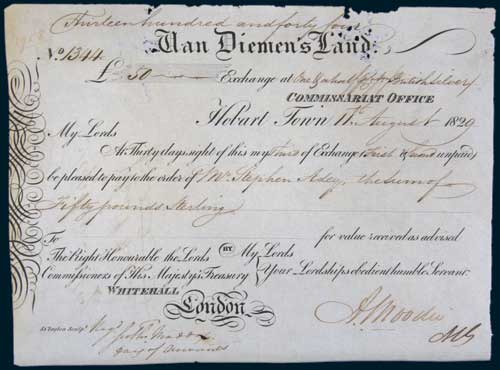 Thirteen hundred and forty four
Van Diemen's Land
No. 1344.
£ 50 Exchange at One & a half p Ct British silver
COMMISSARIAT OFFICE
Hobart Town 11th August 1829
My Lords
At Thirty days sight of this my Third of Exchange First & Second unpaid
be pleased to pay to the order of Mr. Stephen Adey, the Sum of
Fifty pounds Sterling
for value received as advised
To
The Right Honourable the Lords BY My Lords
Commissioners of His Majesty's Treasury Your Lordships obedient humble Servant
WHITEHALL
London
A Moodie